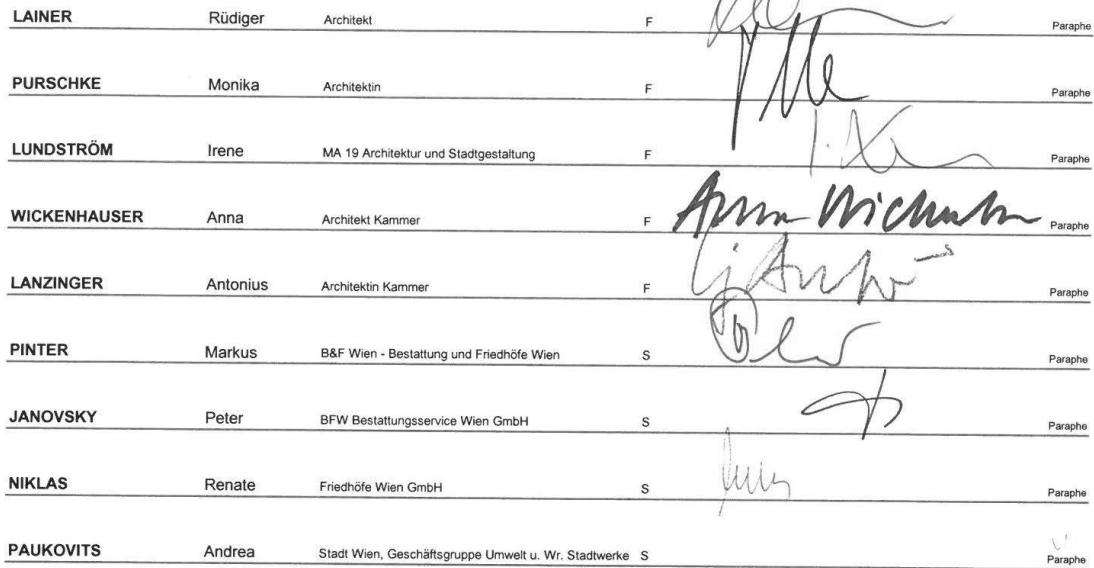 LAINER Rüdiger Architekt F Paraphe
PURSCHKE Monika Architektin F Paraphe
LUNDSTRÖM Irene MA 19 Architektur und Stadtgestaltung F Paraphe
WICKENHAUSER Anna Architekt Kammer F Anna Paraphe
LANZINGER Antonius Architektin Kammer F Paraphe
PINTER Markus B&F Wien - Bestattung und Friedhöfe Wien S Paraphe
JANOVSKY Peter BFW Bestattungsservice Wien GmbH S Paraphe
NIKLAS Renate Friedhöfe Wien GmbH S Paraphe
PAUKOVITS Andrea Stadt Wien, Geschäftsgruppe Umwelt u. Wr. Stadtwerke S Paraphe